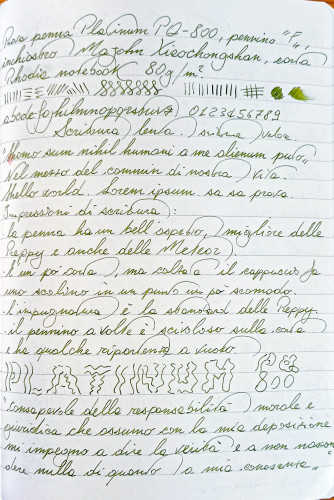 Prova penna Platinum PQ-800, pennino "F",
inchiostro Majohn Xiaochongshan, carta
Rhodia notebook 80g/m²
abcdefghilmnopqrstuvz 0123456789
Scrittura lenta. scrittura veloce.
"Homo sum nihil humani a me alienum puto"
Nel mezzo del cammin di nostra vita.
Hello world. Lorem ipsum. sa sa prova.
Impressioni di scrittura:
- la penna ha un bell'aspetto, migliore delle
Preppy e anche delle Meteor
- è un po' corta, ma coltata il cappuccio fa
uno scalino in un punto un po' scomodo.
- l'impugnatura è la standard delle Preppy.
- il pennino a volte è scivoloso sulla carta
e ha qualche ripartenza a vuoto.
PLATINUM PQ
800
"consapevole della responsabilità morale e
giuridica che assumo con la mia deposizione
mi impegno a dire la verità e a non nascon
dere nulla di quanto a mia conoscenza"